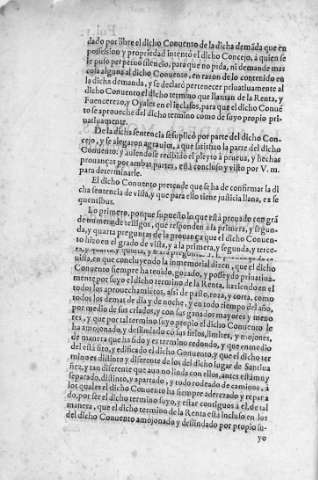 dado por libre el dicho Conuento de la dicha demãda que en
possession y propriedad intentô el dicho Concejo, a quien se
le puso perpetuo silencio, para que no pida, ni demande mas
cosa alguna al dicho Conuento, en razon de lo contenido en
la dicha demanda, y se declarò pertenecer priuatiuamente al
dicho Conuento el dicho termino que llaman de la Renta, y
Fuencerezo, y Oyales en el inclusos, para que el dicho Conuẽ
to se aproueche del dicho termino como de suyo proprio pri-
uatiuamente.
De la dicha sentencia se suplicò por parte del dicho Con-
cejo, y se alegaron agrauios, a que satisfizo la parte del dicho
Conuento: y auiendose recibido el pleyto à prueua, y hechas
prouanças por ambas partes, està concluso y visto por V. m.
para determinarle.
El dicho Conuento pretende que se ha de confirmar la di
cha sentencia de vista, y que para ello tiene justicia llana, ex se
quentibus.
Lo primero, porque supuesto lo que està prouado con grã
de numero de testigos, que responden a la primera, y segun-
da, y quarta preguntas de la prouança que el dicho Conuen-
to hizo en el grado de vista, y a la primera, segunda, y terce-
ra, quarta, y quinta,
uista, en que concluyendo la inmemorial dizen, que el dicho
Conuento siempre ha tenido, gozado, y posseydo priuatiua-
mente por suyo el dicho termino de la Renta, haziendo en el
todos los aprouechamiẽtos, assi de pasto, roza, y corta, como
todos los demas de dia y de noche, y en todo tiempo del año,
por medio de sus criados, y con sus ganados mayores y meno
res, y que por tal termino suyo propio el dicho Conuento le
ha amojonado, y deslindado cõ sus hitos, limites, y mojones,
de manera que ha sido y es termino redondo, y que en medio
del està sito, y edificado el dicho Conuento, y que el dicho ter
mino es distinto y diferente de los del dicho lugar de Sanctiua
ñez, y tan diferente que aun no linda con ellos, antes està muy
separado, distinto, y apartado, y todo rodeado de caminos, à
los quales el dicho Conuento ha siempre adereçado y repara
do, por ser el dicho termino suyo, y estar consiguos à el, de tal
manera, que el dicho termino de la Renta està incluso en los
del dicho Conuento amojonado y deslindado por propio su-
yo